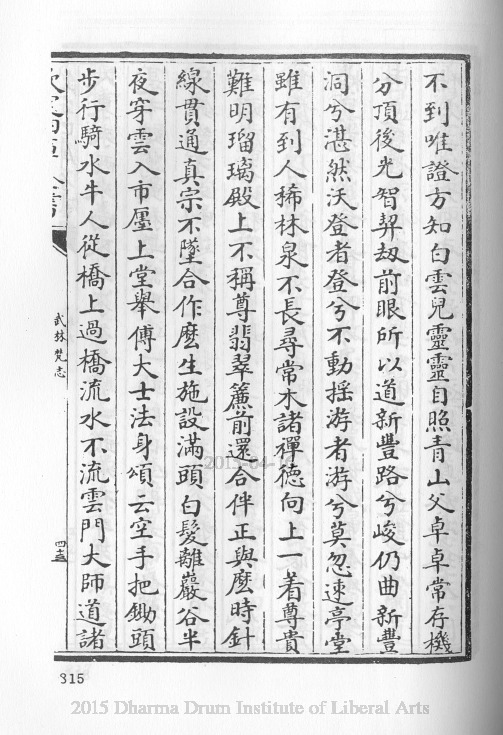 不到唯證方知白雲兒靈靈自照青山父卓卓常存機
分頂後光智契劫前眼所以道新豐路兮峻仍曲新豐
洞兮湛然沃登者登兮不動搖游者游兮莫忽速亭堂
雖有到人稀林泉不長尋常木諸禪德向上一着尊貴
難明瑠璃殿上不稱尊翡翠簾前還合伴正與麽時針
線貫通真宗不墜合作麽生施設滿頭白髮離巖谷半
夜穿雲入市廛上堂舉傅大士法身頌云空手把鋤頭
步行騎水牛人從橋上過橋流水不流雲門大師道諸
武林梵志
315
2015 Dharma Drum Institute of Liberal Arts